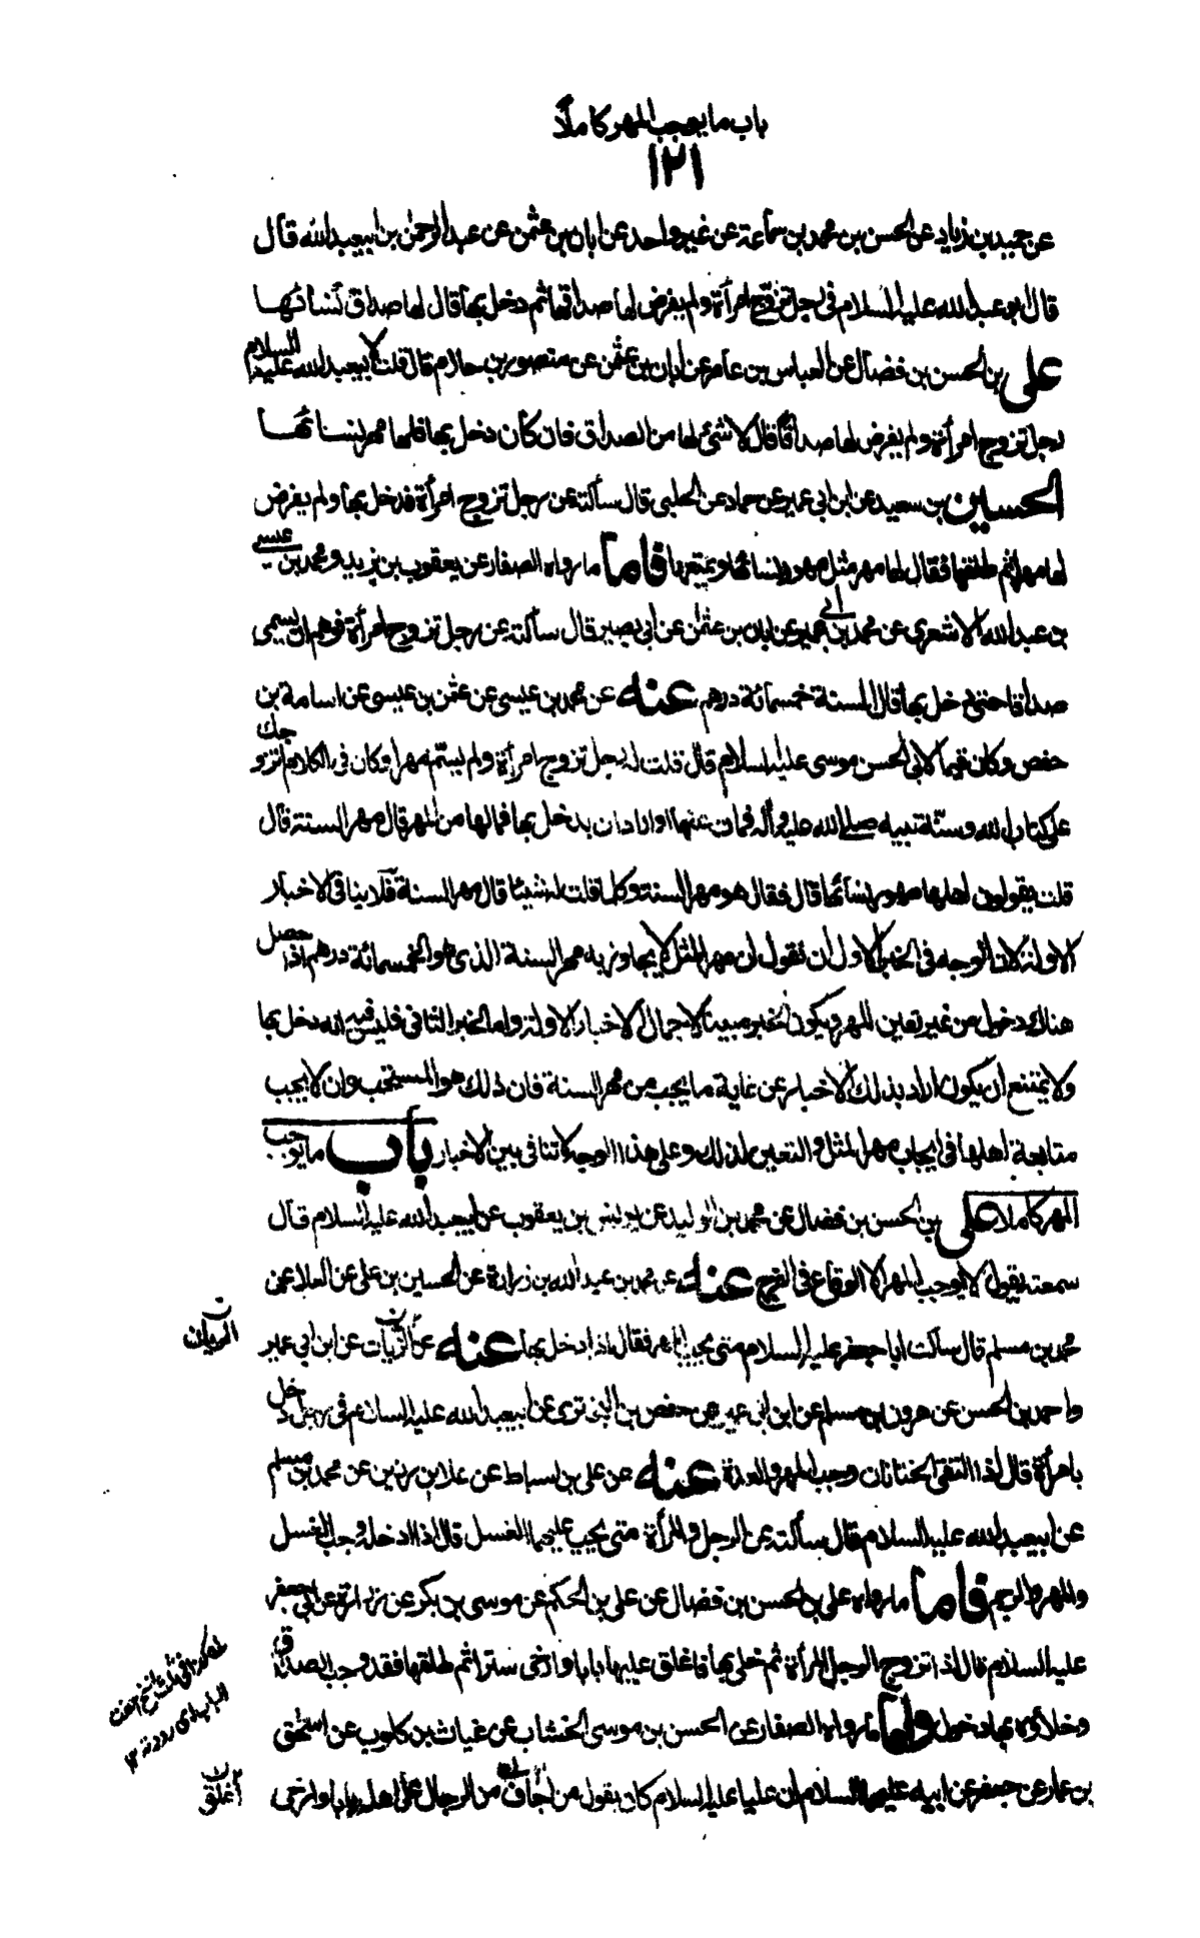 باب ما يوجب المهر كاملاً
١٢١
عن حميد بن زياد عن الحسن بن محمد بن سماعة عن غير واحد عن ابان بن عثمن عن عبد الرحمن بن ابيعبد الله قال
قال ابو عبد الله عليه السلام فى رجل تزوج امرأة ولم يفرض لها صداقها ثم دخل بها قال لها صداق نسائها
على بن الحسن بن فضال عن العباس بن عامر عن ابان بن عثمن عن منصور بن حازم قال قلت لابيعبد الله عليه السلام
رجل تزوج امرأة ولم يفرض لها صداقا قال لا شئ لها من الصداق فان كان دخل بها فلها مهر نسائها
الحسين بن سعيد عن ابن ابى عمير عن حماد عن الحلبى قال سألته عن رجل تزوج امرأة فدخل بها ولم يفرض
لها مهرا ثم طلقها فقال لها مهر مثل مهور نسائها ويمتعها فاما ما رواه الصفار عن يعقوب بن يزيد ومحمد بن عيسى
بن عبد الله الاشعرى عن محمد بن ابى عمير عن ابان بن عثمان عن ابى بصير قال سألته عن رجل تزوج امرأة فوهم ان يسمى
صداقا حتى دخل بها قال السنة خمسمائة درهم عنه عن محمد بن عيسى عن عثمن بن عيسى عن اسامة بن
حفص وكان قيما لابى الحسن موسى عليه السلام قال قلت له رجل تزوج امرأة ولم يسم مهرا وكان فى الكلام اتزوجك
على كتاب الله وسنة نبيه صلى الله عليه وآله فمات عنها او اراد ان يدخل بها فما لها من المهر قال مهر السنة قال
قلت يقولون اهلها مهور نسائها قال فقال هو مهر السنة وكلما قلت له شيئا قال مهر السنة فلا ينافى الاخبار
الاولة لان الوجه فى الخبر الاول ان نقول ان مهر المثل لا يجاوز به مهر السنة الذى هو الخمسمائة درهم اذا حصل
هناك دخول من غير تعيين المهر ويكون الخبر مبينا لاجمال الاخبار الاولة واما الخبر الثانى فليس فيه انه دخل بها
ولا يمتنع ان يكون اراد بذلك الاخبار عن غاية ما يجب من مهر السنة فان ذلك هو المستحب وان لا يجب
متابعة اهلها فى ايجاب مهر المثل والتعيين لذلك وعلى هذا الوجه لا تنافى بين الاخبار باب ما يوجب
المهر كاملا على بن الحسن بن فضال عن محمد بن الوليد عن يونس بن يعقوب عن ابيعبد الله عليه السلام قال
سمعته يقول لا يوجب المهر الا الوقاع فى الفرج عنه عن محمد بن عبد الله بن زرارة عن الحسين بن على عن العلا عن
محمد بن مسلم قال سألت ابا جعفر عليه السلام متى يجب المهر فقال اذا دخل بها عنه عن الزيات عن ابن ابى عمير
الريان
واحمد بن الحسن عن هرون بن مسلم عن ابن ابى عمير عن حفص بن البخترى عن ابيعبد الله عليه السلام فى رجل دخل
بامرأة قال اذا التقى الختانان وجب المهر والعدة عنه عن على بن اسباط عن علا بن رزين عن محمد بن مسلم
عن ابيعبد الله عليه السلام قال سألته عن الرجل والمرأة متى يجب عليهما الغسل قال اذا ادخله وجب الغسل
والمهر والرجم فاما ما رواه على بن الحسن بن فضال عن على بن الحكم عن موسى بن بكر عن زرارة عن ابى جعفر
عليه السلام قال اذا تزوج الرجل المرأة ثم خلى بها فاغلق عليها بابا او ارخى سترا ثم طلقها فقد وجب الصداق
وخلاؤه بها دخول واما ما رواه الصفار عن الحسن بن موسى الخشاب عن غياث بن كلوب عن اسحق
بن عمار عن جعفر عن ابيه عليهما السلام ان عليا عليه السلام كان يقول من اجاف من الرجال على اهله بابا او ارخى
أغلق